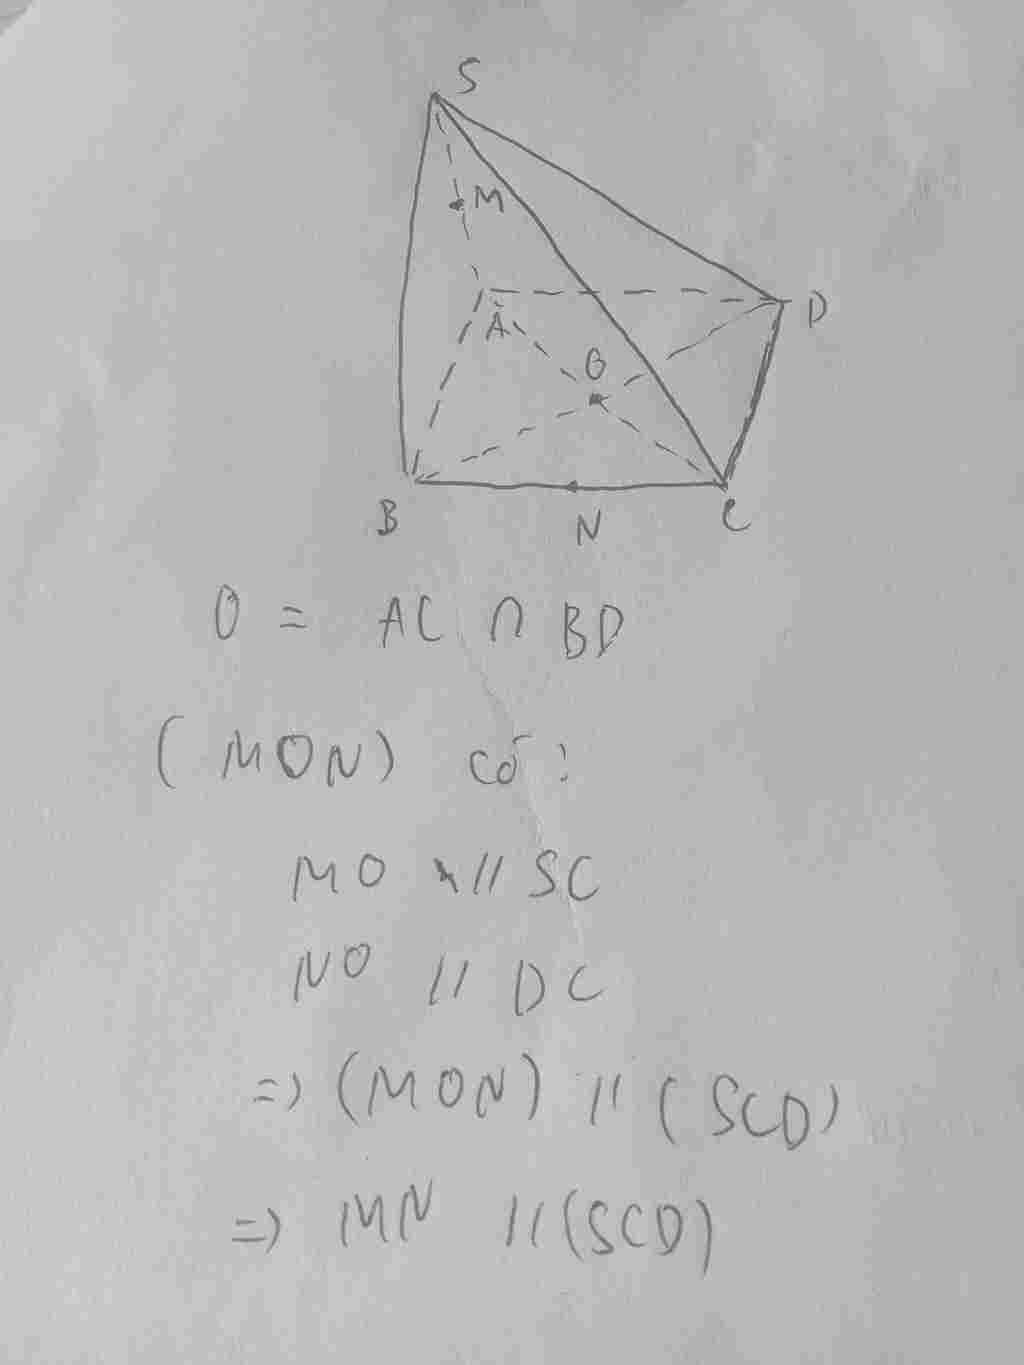 S
M
A
D
O
B
N
C
O = AC ∩ BD
(MON) có:
MO // SC
NO // DC
=> (MON) // (SCD)
=> MN // (SCD)